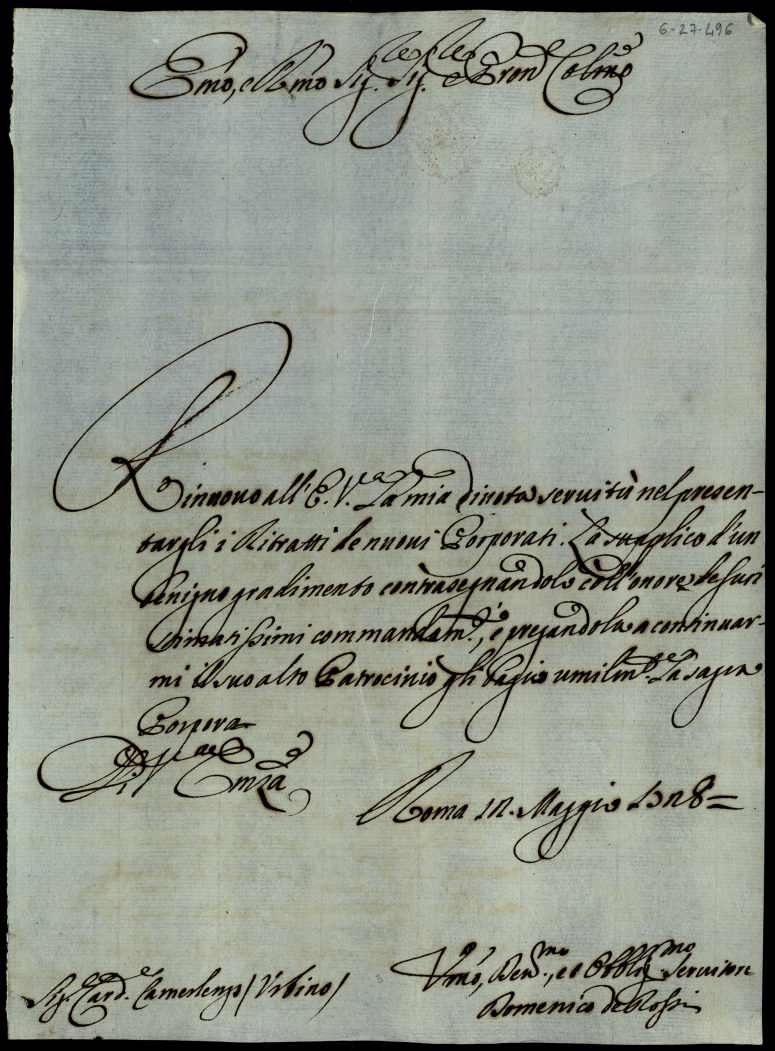 6-27-496
Emo, e Rmo Sig.re Sig.re e Pron.e Colmo
Rinnovo all'E. V.a La mia divota servitù nel presen-
targli i Ritratti de nuovi Porporati. La supplico d'un
benigno gradimento contrasegnandolo coll'onore de suoi
stimatissimi commandam.ti, e pregandola a continuar-
mi il suo alto Patrocinio gli bagio umilm.te La sagra
Porpora
Di V.ra Emza
Roma 12. Maggio 1728=
Sig.re Card.e Camerlengo / Urbino /
Vmo, Dev.mo, ed Obblig.mo Servitore
Domenico de Rossi